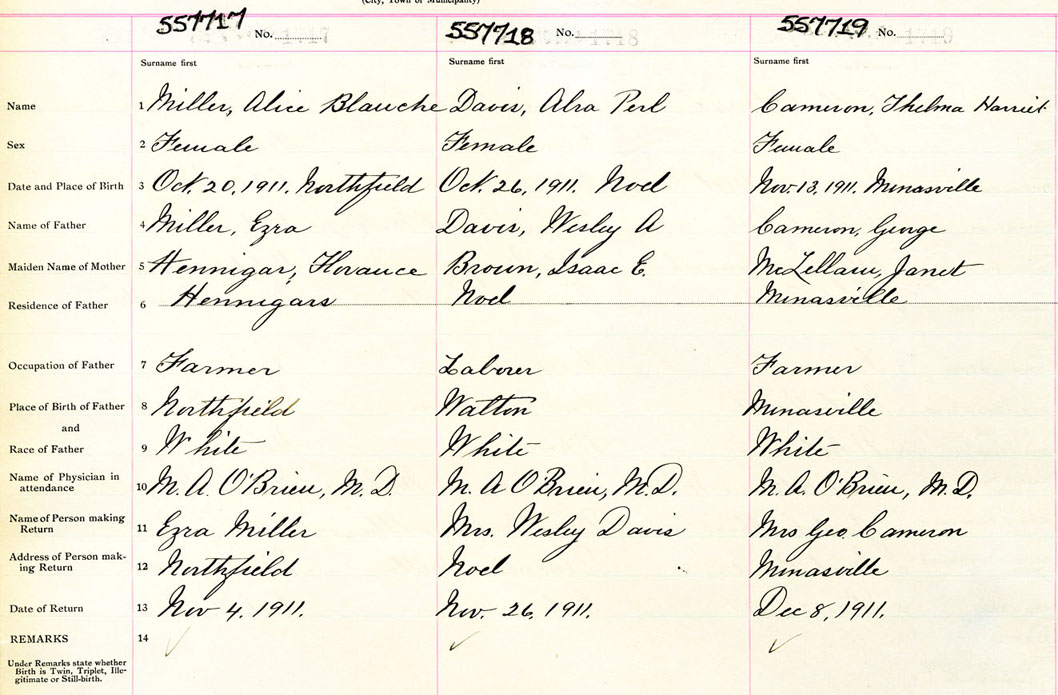 (City, Town or Municipality)
557717 No. 1717 557718 No. 1718 557719 No. 1719
Surname first Surname first Surname first
Name 1 Miller, Alice Blanche Davis, Alra Perl Cameron, Thelma Harriet
Sex 2 Female Female Female
Date and Place of Birth 3 Oct. 20, 1911. Northfield Oct. 26, 1911. Noel Nov 13, 1911. Minasville
Name of Father 4 Miller, Ezra Davis, Wesley A Cameron, George
Maiden Name of Mother 5 Hennigar, Florance Brown, Isaac E. McLellan, Janet
Residence of Father 6 Hennigars Noel Minasville
Occupation of Father 7 Farmer Laborer Farmer
Place of Birth of Father 8 Northfield Walton Minasville
and
Race of Father 9 White White White
Name of Physician in
attendance 10 M. A. O'Brien, M.D. M. A O'Brien, M.D. M. A. O'Brien, M.D.
Name of Person making
Return 11 Ezra Miller Mrs. Wesley Davis Mrs Geo. Cameron
Address of Person mak-
ing Return 12 Northfield Noel Minasville
Date of Return 13 Nov 4, 1911. Nov. 26, 1911. Dec 8, 1911.
REMARKS 14
Under Remarks state whether
Birth is Twin, Triplet, Ille-
gitimate or Still-birth.